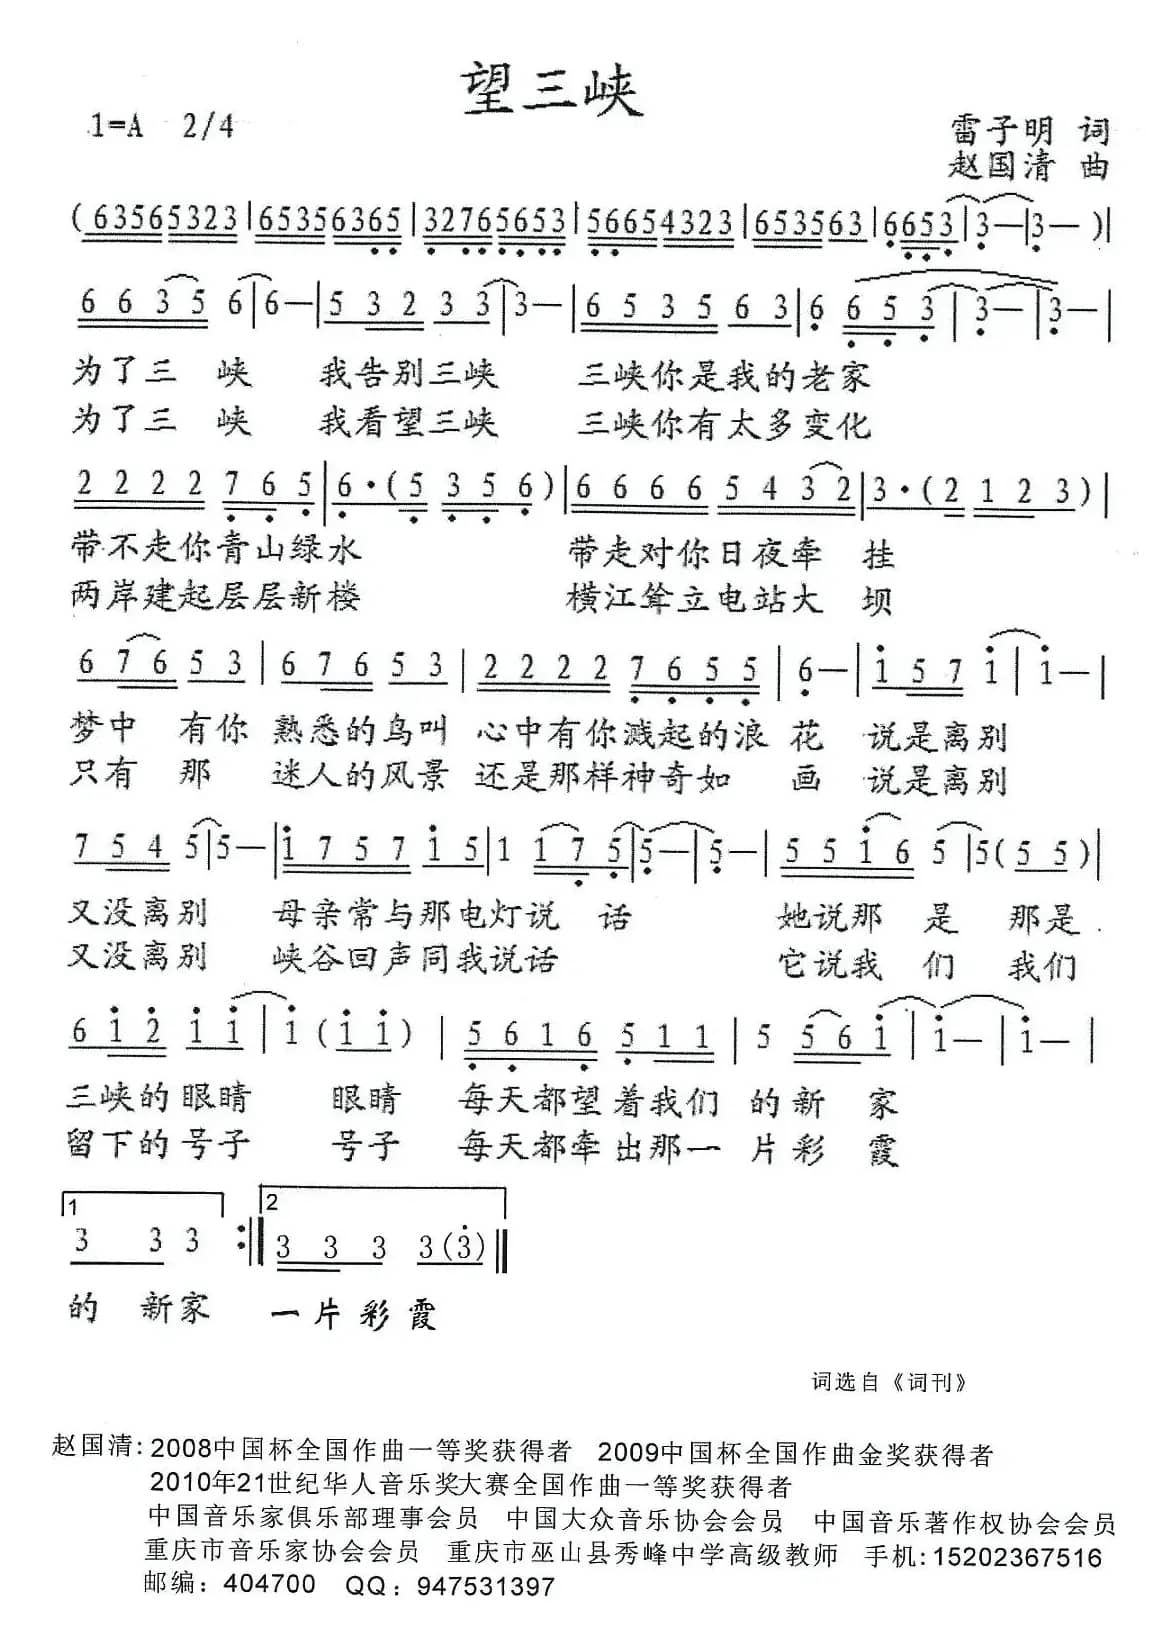 望三峡
1=A 2/4
雷子明 词
赵国清 曲
(63565323|65356365|32765653|56654323|653563|6653|3—|3—)|
6635 6|6—|5323 3|3—|6535 63|6 653|3—|3—|
为了三 峡 我告别三峡 三峡你是我的老家
为了三 峡 我看望三峡 三峡你有太多变化
2222 765|6·(5 356)|6666 5432|3·(2 123)|
带不走你青山绿水 带走对你日夜牵 挂
两岸建起层层新楼 横江耸立电站大 坝
676 53|676 53|2222 7655|6—|157 1|1—|
梦中 有你 熟悉的鸟叫 心中有你溅起的浪 花 说是离别
只有 那 迷人的风景 还是那样神奇如 画 说是离别
754 5|5—|1757 15|1 175|5—|5—|5516 5|5(55)|
又没离别 母亲常与那电灯说 话 她说那 是 那是
又没离别 峡谷回声同我说话 它说我 们 我们
612 11|1(11)|5616 511|5 561|1—|1—|
三峡的眼睛 眼睛 每天都望着我们 的新 家
留下的号子 号子 每天都牵出那一 片彩 霞
1 2
3 3 3 :‖ 3 3 3 3(3)‖
的 新家 一片彩霞
词选自《词刊》
赵国清: 2008中国杯全国作曲一等奖获得者 2009中国杯全国作曲金奖获得者
2010年21世纪华人音乐奖大赛全国作曲一等奖获得者
中国音乐家俱乐部理事会员 中国大众音乐协会会员 中国音乐著作权协会会员
重庆市音乐家协会会员 重庆市巫山县秀峰中学高级教师 手机:15202367516
邮编: 404700 QQ: 947531397